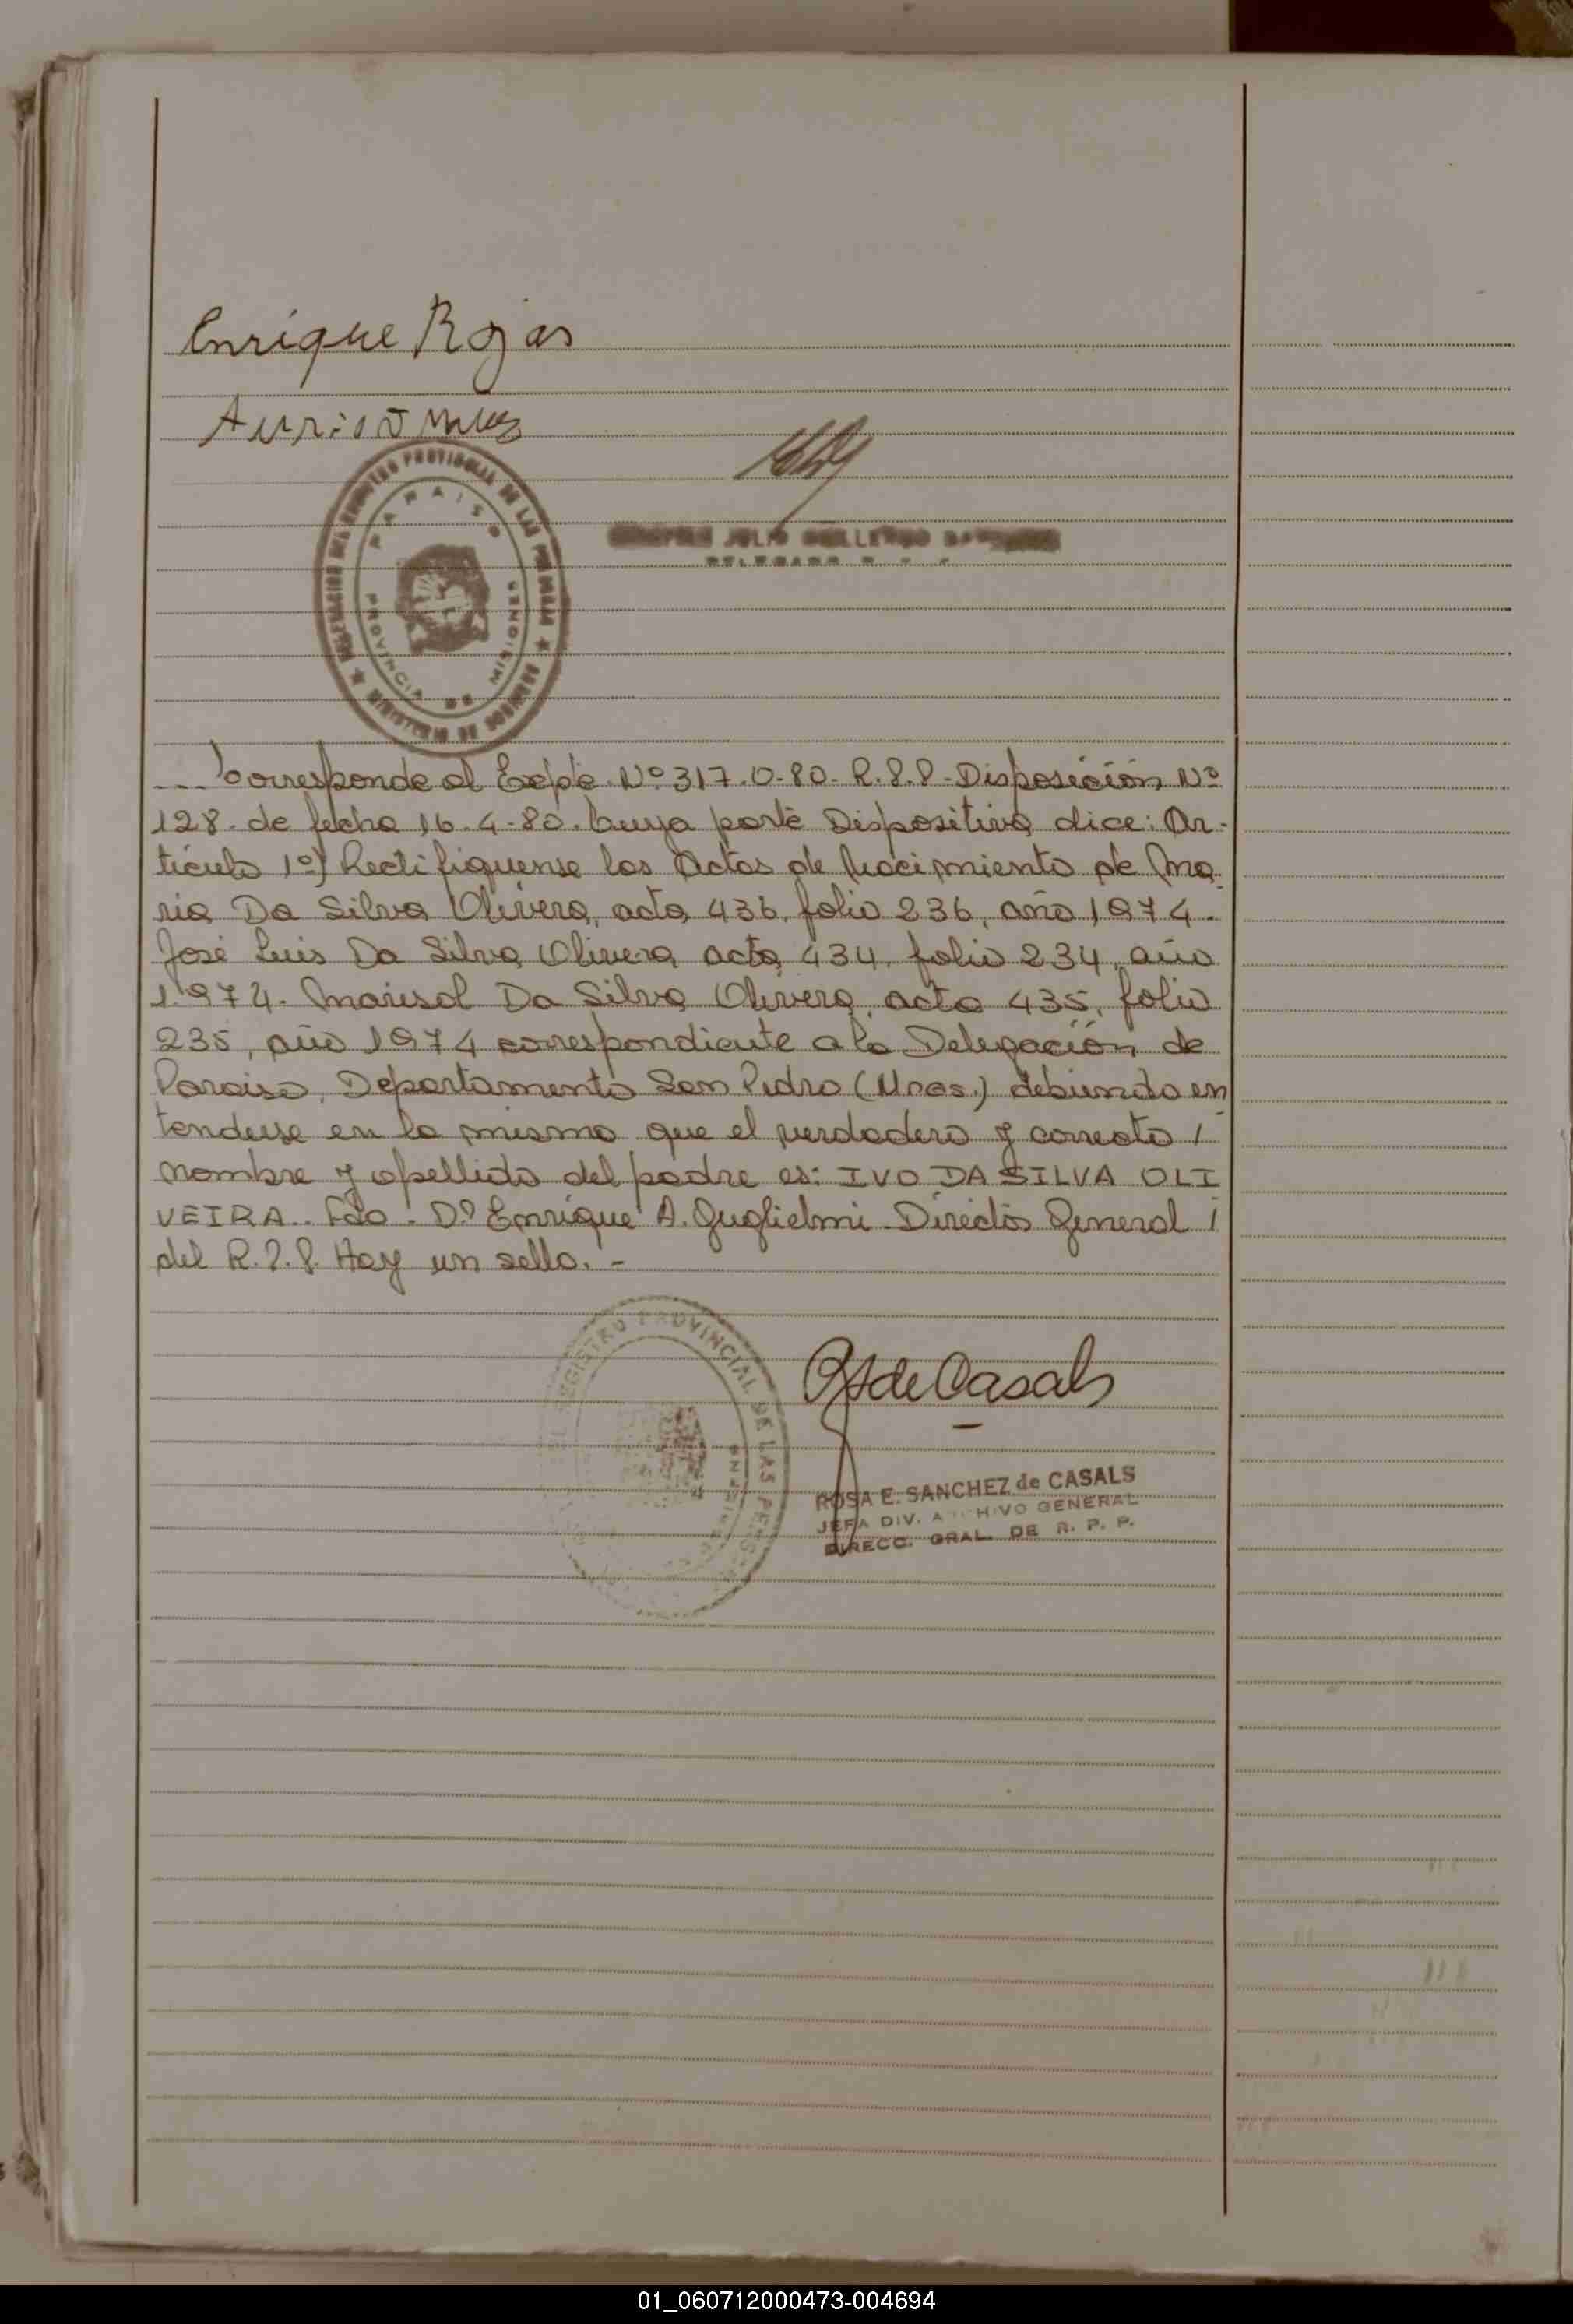 Enrique Rojas
PROVINCIAL DE LAS
PARAISO
PROVINCIA DE MISIONES
MINISTERIO DE GOBIERNO
JULIO
DELEGADO
... Corresponde al Expte. Nº 317.O-80. R.P.P. Disposición Nº
128. de fecha 16.4-80. Cuya parte Dispositiva dice: Ar-
tículo 1º) Rectifiquense las Actas de Nacimiento de Ma-
ria Da Silva Olivera, acta 436, folio 236, año 1974.
José Luis Da Silva Olivera acta 434, folio 234, año
1.974. Marisol Da Silva Olivera, acta 435, folio
235, año 1974 correspondiente a la Delegación de
Paraiso, Departamento San Pedro (Mnes.) debiendo en
tenderse en la misma que el verdadero y correcto /
nombre y apellido del padre es: IVO DA SILVA OLI
VEIRA. Fdo. Dº Enrique A. Guglielmi. Director General /
del R.P.P. Hay un sello. -
REGISTRO PROVINCIAL DE LAS PERS
RSdeCasals
ROSA E. SANCHEZ de CASALS
JEFA DIV. ARCHIVO GENERAL
DIRECC. GRAL. DE R. P. P.
01_060712000473-004694